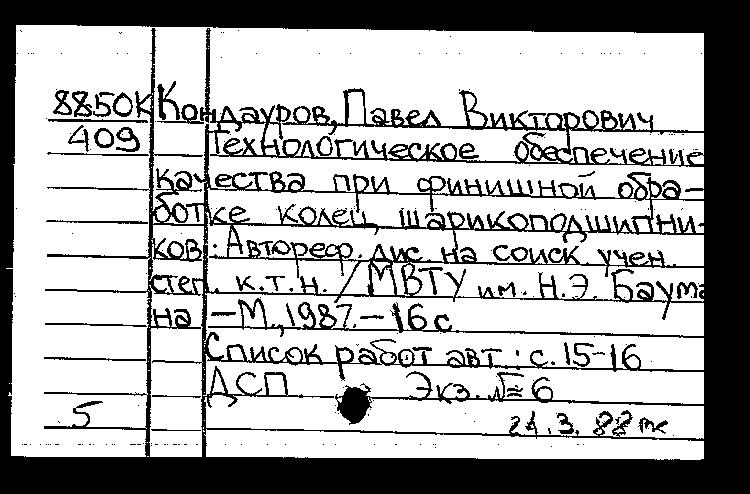 8850К Кондауров, Павел Викторович
409 Технологическое обеспечение
качества при финишной обра-
ботке колец шарикоподшипни-
ков: Автореф. дис. на соиск. учен.
степ. к.т.н. / МВТУ им. Н.Э. Баума
на - М., 1987. - 16 с
Список работ авт.: с. 15-16
ДСП Экз. № 6
5 24.3.88